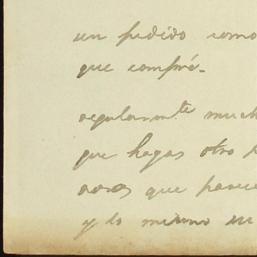 un pedido como
que compré.
regularmte much
que hagas otro p
que parece
y lo mismo su